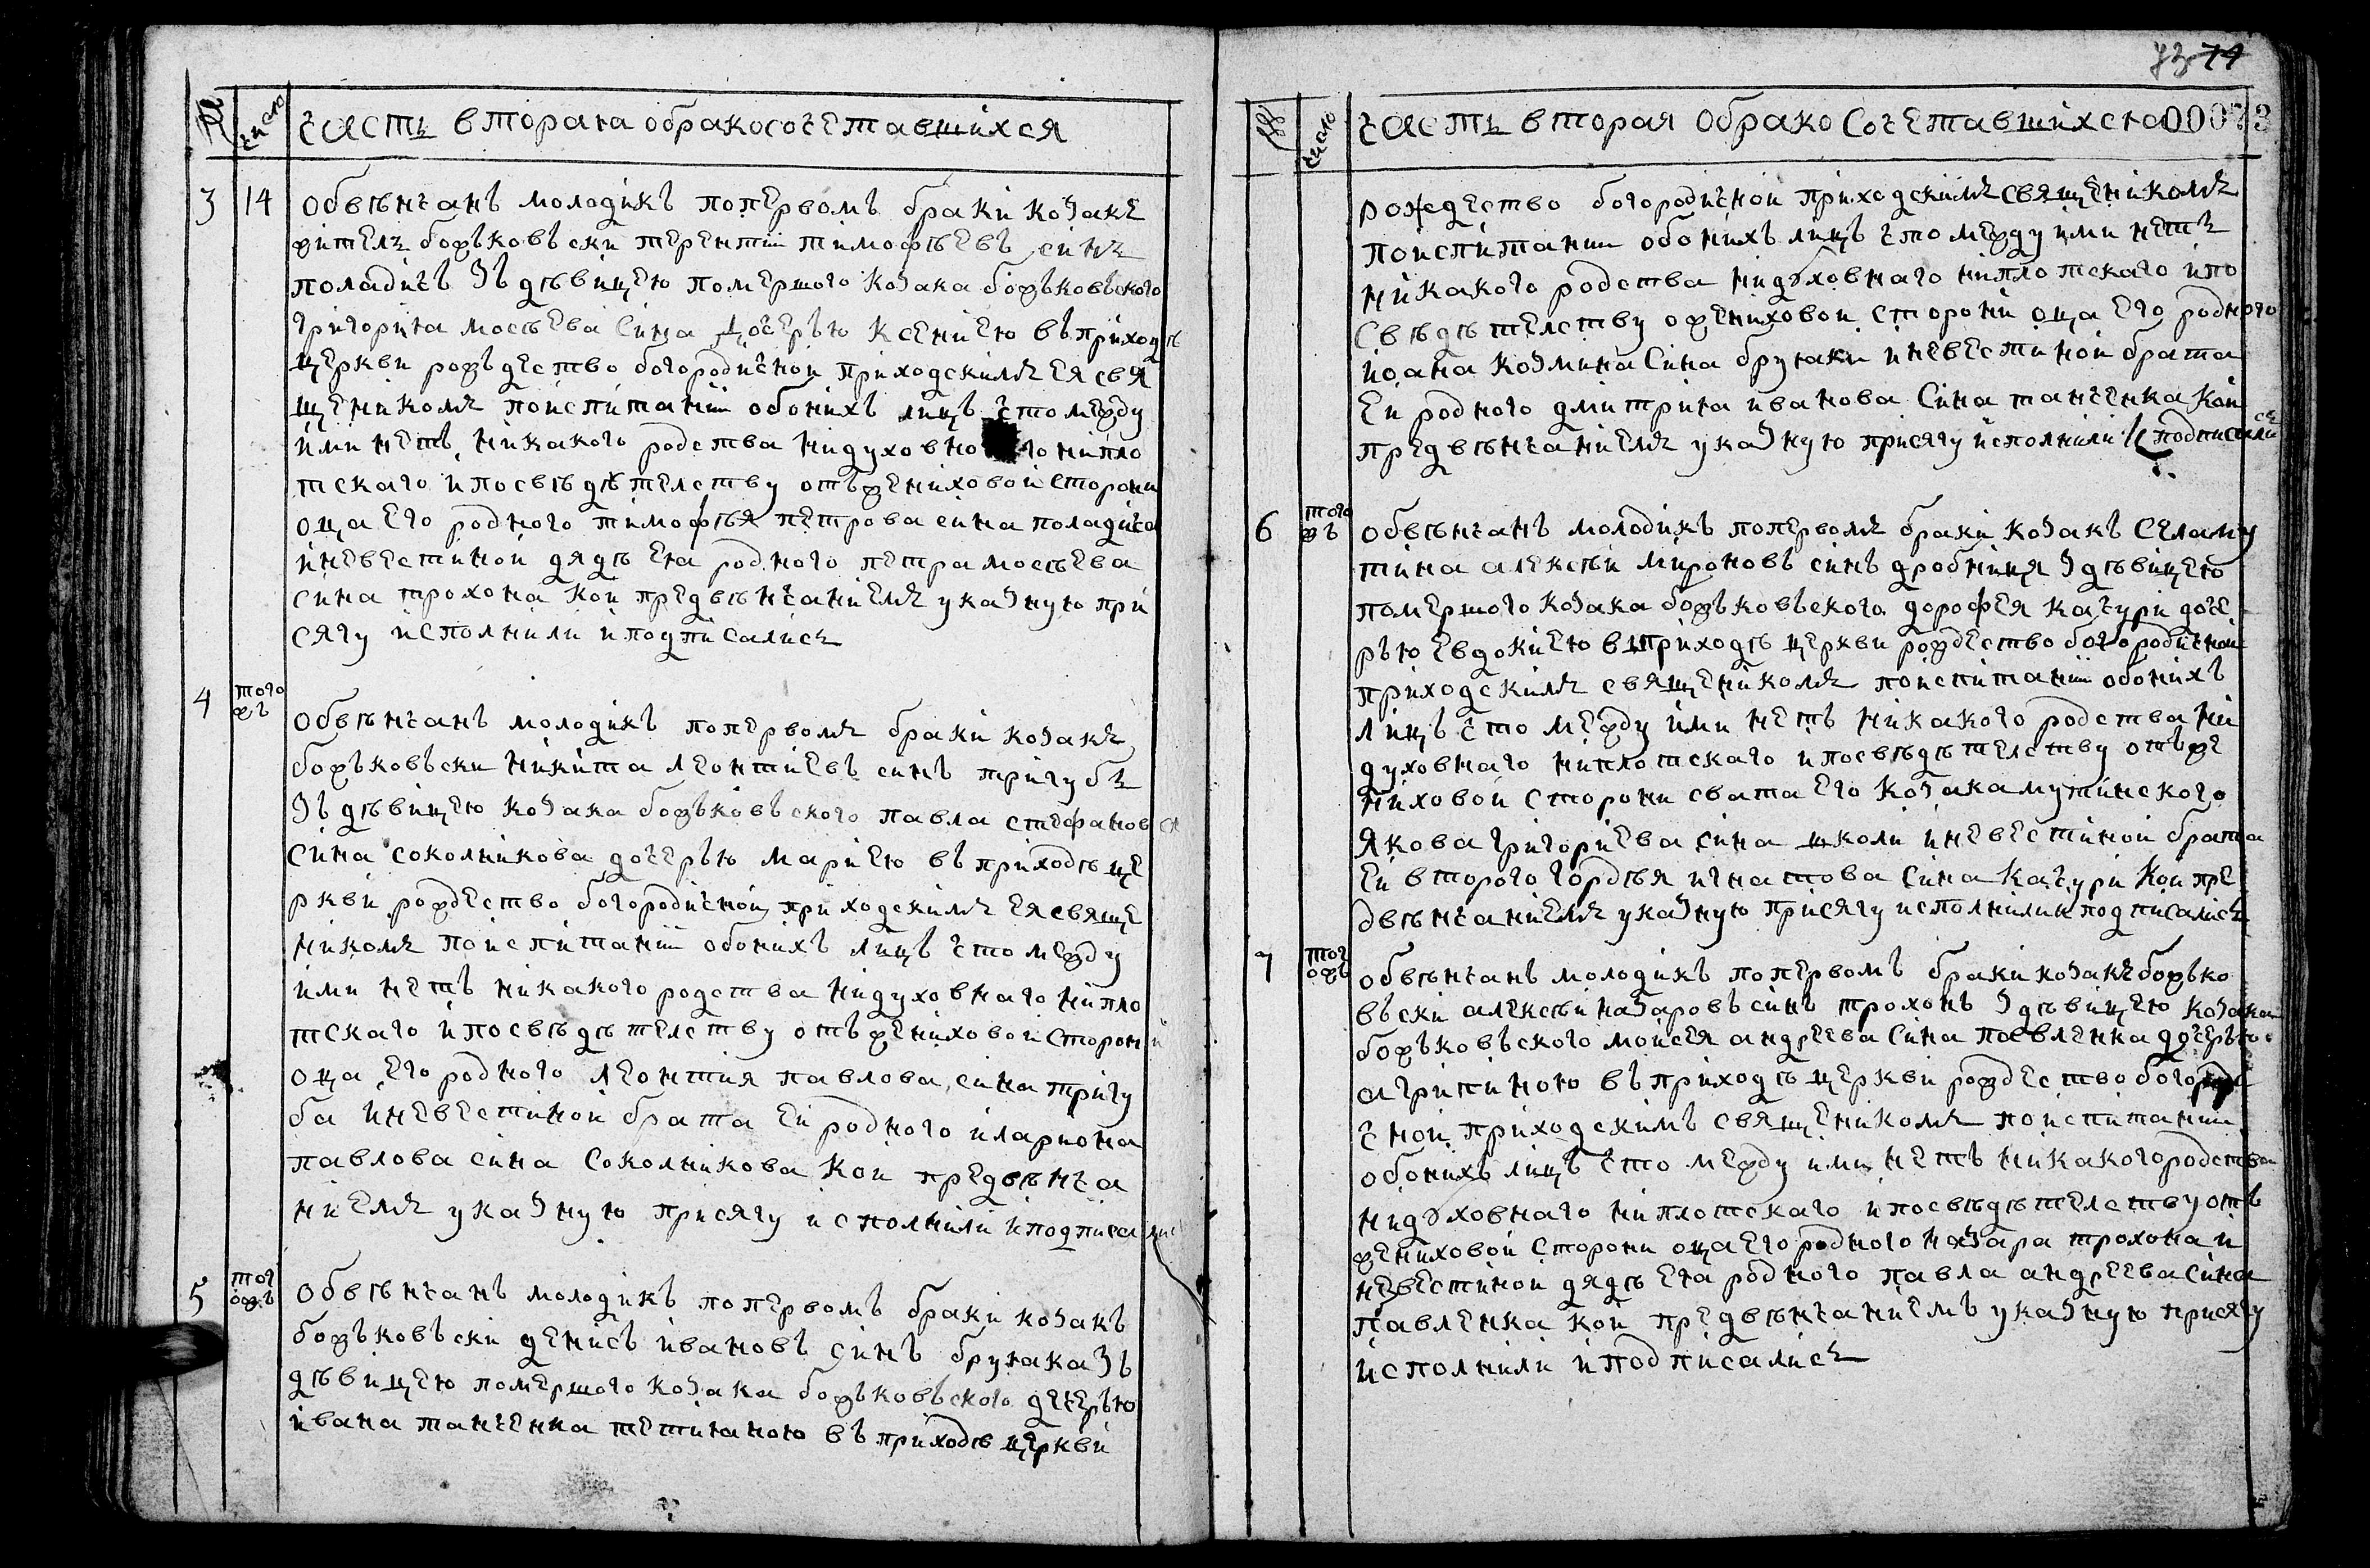 число
часть вторая обракосочетавшихся
3 14 обвѣнчанъ молодикъ попервомъ браки козакъ
житель божъковъски терентий тимофѣевъ синъ
поладичъ зъ дѣвицею помершого козака божъковъского
григория мосѣева сина дочерью ксениею въ приходѣ
церкви рожъдество богородичной приходскимъ ея свя
щеникомъ поиспитании обоихъ лицъ что между
ими нетъ никакого родства нидуховно го нипло
тскаго и посвѣдѣтелству отъжениховой сторони
оца его родного тимофѣя петрова сина поладича
иневестиной дядѣ ея родного петра мосѣева
сина трохона кои предвѣнчаниемъ указную при
сягу исполнили и подписались
4 того жъ обвѣнчанъ молодикъ попервомъ браки козакъ
божъковъски никита леонтиевъ синъ тригубъ
зъ дѣвицею козака божъковъского павла стефанова
сина соколникова дочерью мариею въ приходѣ це
ркви рождество богородичной приходскимъ ея свяще
никомъ поиспитании обоихъ лицъ что между
ими нетъ никакого родства нидуховнаго нипло
тскаго и посвѣдѣтелству отъ жениховой сторони
оца его родного леонтия павлова сина тригу
ба иневестиной брата ей родного илариона
павлова сина соколникова кои предвѣнча
ниемъ указную присягу исполнили и подписались
5 тогожъ обвѣнчанъ молодикъ попервомъ браки козакъ
божъковъски денисъ ивановъ синъ бруяка зъ
дѣвицею помершого козака божъковъского дечерью
ивана танченка тетияною въ приходѣ церкви
73 74
число
часть вторая обракосочетавшихся 00073
рождество богородичной приходскимъ священикомъ
поиспитании обоихъ лицъ что между ими нетъ
никакого родства нидуховнаго ниплотскаго ипо
свѣдѣтелству ожениховой сторони оца его родного
иоана козмина сина бруяки иневестиной брата
ей родного дмитрия иванова сина танченка кои
предвѣнчаниемъ указную присягу исполнили и подписались
6 того жъ обвѣнчанъ молодикъ попервомъ браки козакъ села му
тина алексѣй мироновъ синъ дробниця здѣвицею
помершого козака божъковъского дорофея качури доче
рью евдокиею вприходѣ церкви рождество богородичной
приходскимъ священикомъ поиспитании обоихъ
лицъ что между ими нетъ никакого родства ни
духовнаго ниплотскаго и посвѣдѣтелству отъже
ниховой сторони свата его козака мутинского
якова григориева сина школи иневестиной брата
ей второго гордѣя игнатова сина качури кои пре
двѣнчаниемъ указную присягу исполнили и подписались
7 тогожъ обвѣнчанъ молодикъ попервомъ браки козакъ божъко
въски алексѣй назаровъ синъ трохонъ здѣвицею козака
божъковъского моисея андреева сина павленка дочерью
агрипиною въ приходѣ церкви рождество богороди
чной приходскимъ священикомъ поиспитании
обоихъ лицъ что между ими нетъ никакого родства
нидуховнаго ниплотскаго и посвѣдѣтелству отъ
жениховой сторони оца его родного назара трохона и
невестиной дядѣ ея родного павла андреева сина
павленка кои предвѣнчаниемъ указную присягу
исполнили и подписались